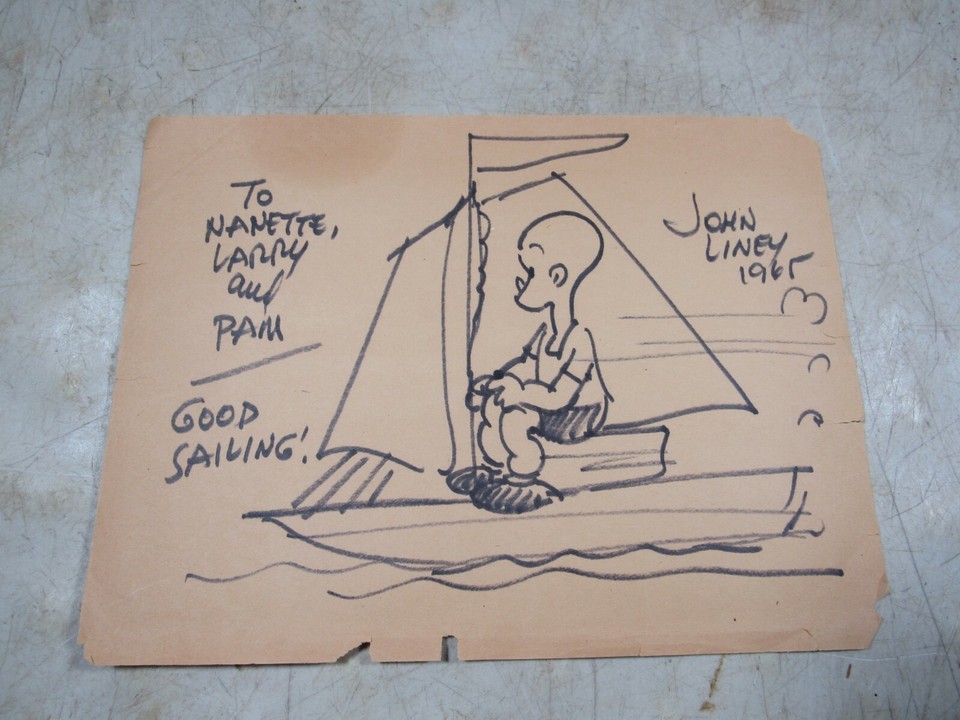 To
NANETTE,
LARRY
and
PAM
GOOD
SAILING!
JOHN
LINEY
1965